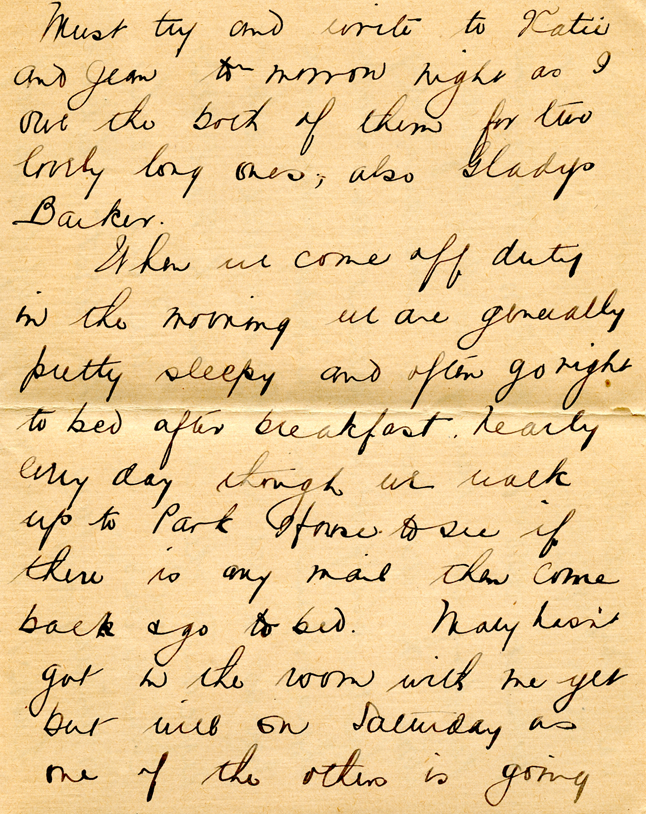 Must try and write to Katie
and Jean to-morrow night as I
owe the both of them for two
lovely long ones, also Gladys
Barker.
When we come off duty
in the morning we are generally
pretty sleepy and often go right
to bed after breakfast. Nearly
every day though we walk
up to Park House to see if
there is any mail then come
back & go to bed. Mary hasn't
got in the room with me yet
but will on Saturday as
one of the others is going